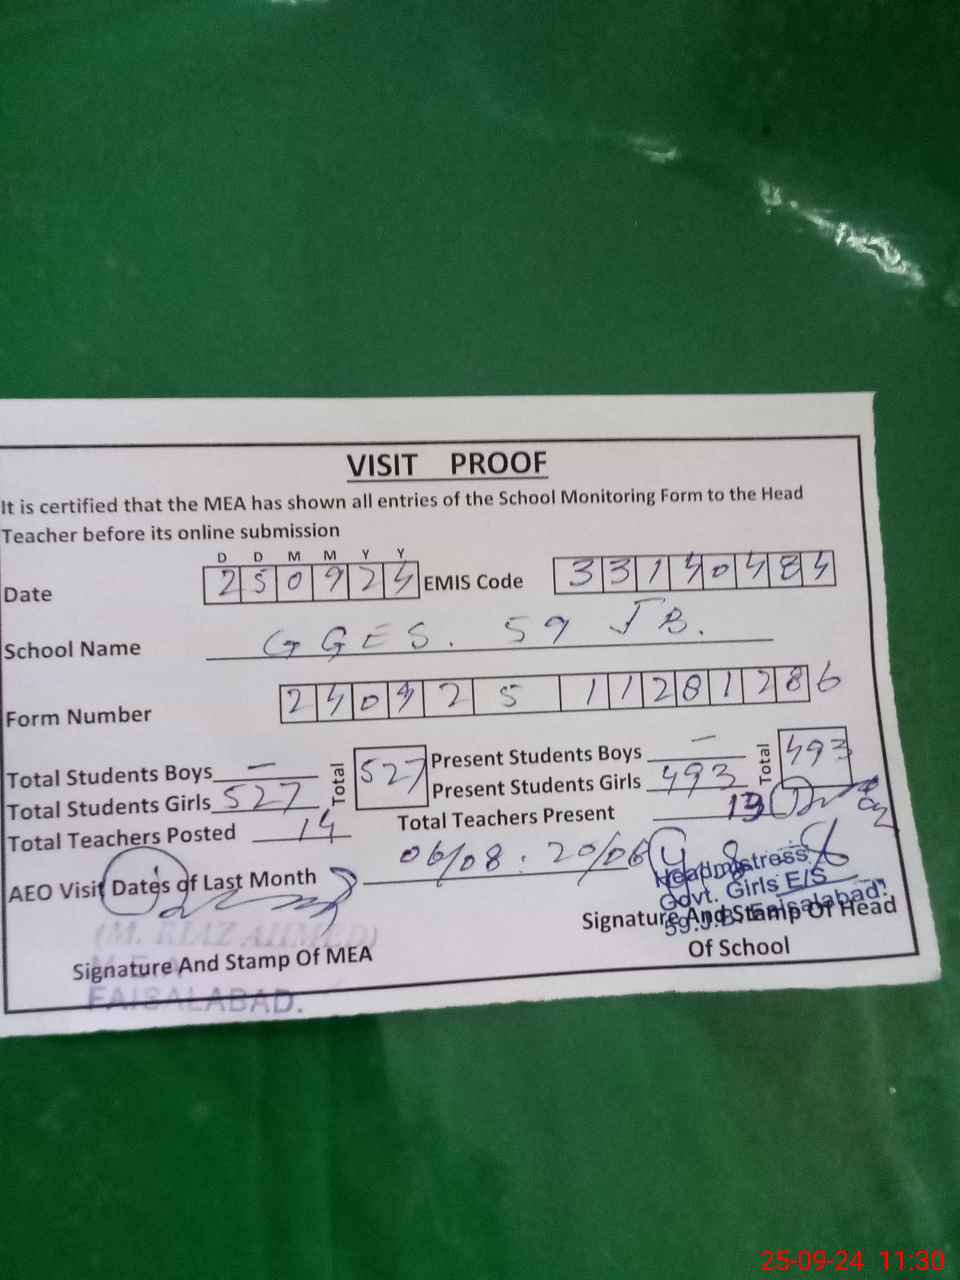 VISIT PROOF
It is certified that the MEA has shown all entries of the School Monitoring Form to the Head
Teacher before its online submission
D D M M Y Y
Date 2 5 0 9 2 4 EMIS Code 3 3 1 4 0 4 8 4
School Name GGES. 59 JB.
Form Number 2 4 0 9 2 5 1 1 2 8 1 2 8 6
Total Students Boys — Total 527 Present Students Boys — Total 493
Total Students Girls 527 Present Students Girls 493
Total Teachers Posted 14 Total Teachers Present 13
AEO Visit Dates of Last Month 06/08 . 20/08
Headmistress
Govt. Girls E/S
59.J.B. Faisalabad.
Signature And Stamp Of Head
Of School
(M. RIAZ AHMED)
M.E.A
FAISALABAD.
Signature And Stamp Of MEA
25-09-24 11:30